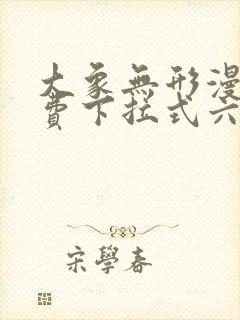 大象無形漫
費下拉式六
宋學春